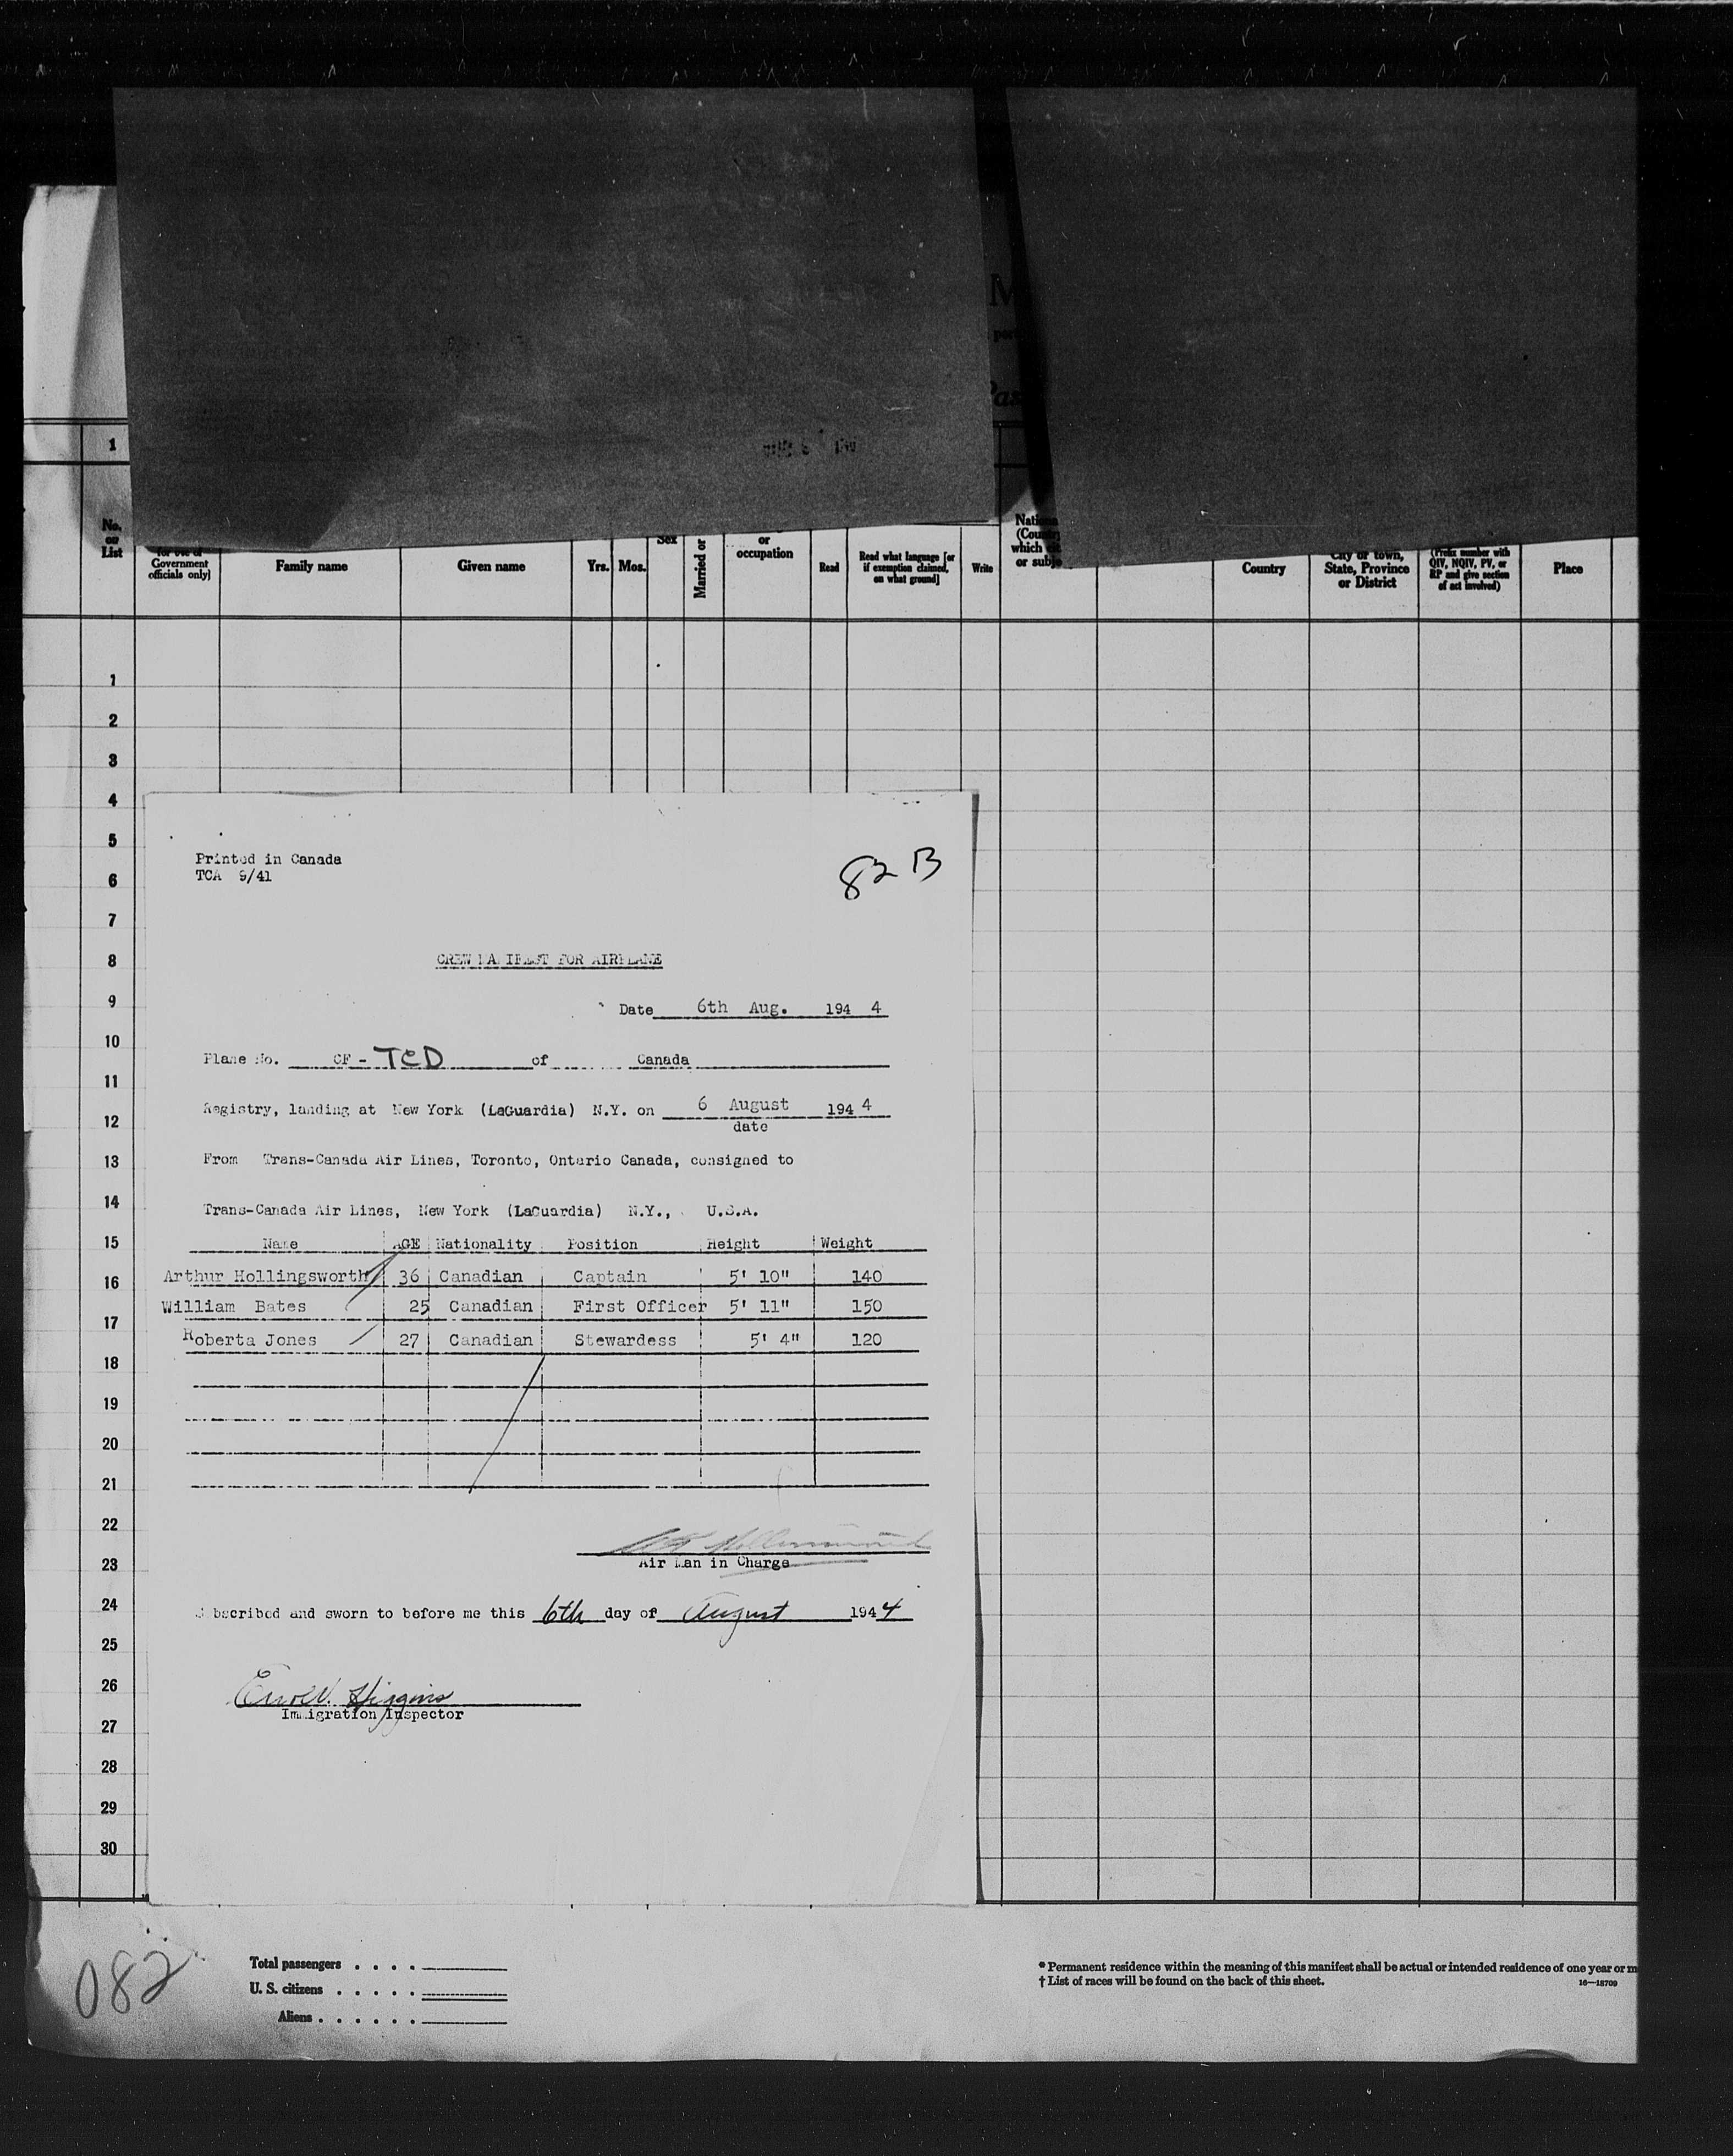 1
No.
on
List
for use of
Government
officials only]
Family name
Given name
Yrs.
Mos.
Sex
Married or
or
occupation
Read
Read what language [or
if exemption claimed,
on what ground]
Write
which
Country
City or town,
State, Province
or District
(Prefix number with
QIV, NQIV, PV, or
RP and give section
of act involved)
Place
1
2
3
4
5
6
7
8
9
10
11
12
13
14
15
16
17
18
19
20
21
22
23
24
25
26
27
28
29
30
Printed in Canada
TCA 9/41
82 B
CREW MANIFEST FOR AIRPLANE
Date 6th Aug. 194 4
Plane No. CF - TCD of Canada
Registry, landing at New York (LaGuardia) N.Y. on 6 August 194 4
date
From Trans-Canada Air Lines, Toronto, Ontario Canada, consigned to
Trans-Canada Air Lines, New York (LaGuardia) N.Y., U.S.A.
Name AGE Nationality Position Height Weight
Arthur Hollingsworth 36 Canadian Captain 5' 10" 140
William Bates 25 Canadian First Officer 5' 11" 150
Roberta Jones 27 Canadian Stewardess 5' 4" 120
Air Man in Charge
bscribed and sworn to before me this 6th day of August 194 4
Higgins
Immigration Inspector
082
Total passengers . . . .
U. S. citizens . . . . .
Aliens . . . . . .
* Permanent residence within the meaning of this manifest shall be actual or intended residence of one year or m
† List of races will be found on the back of this sheet.
16—18709